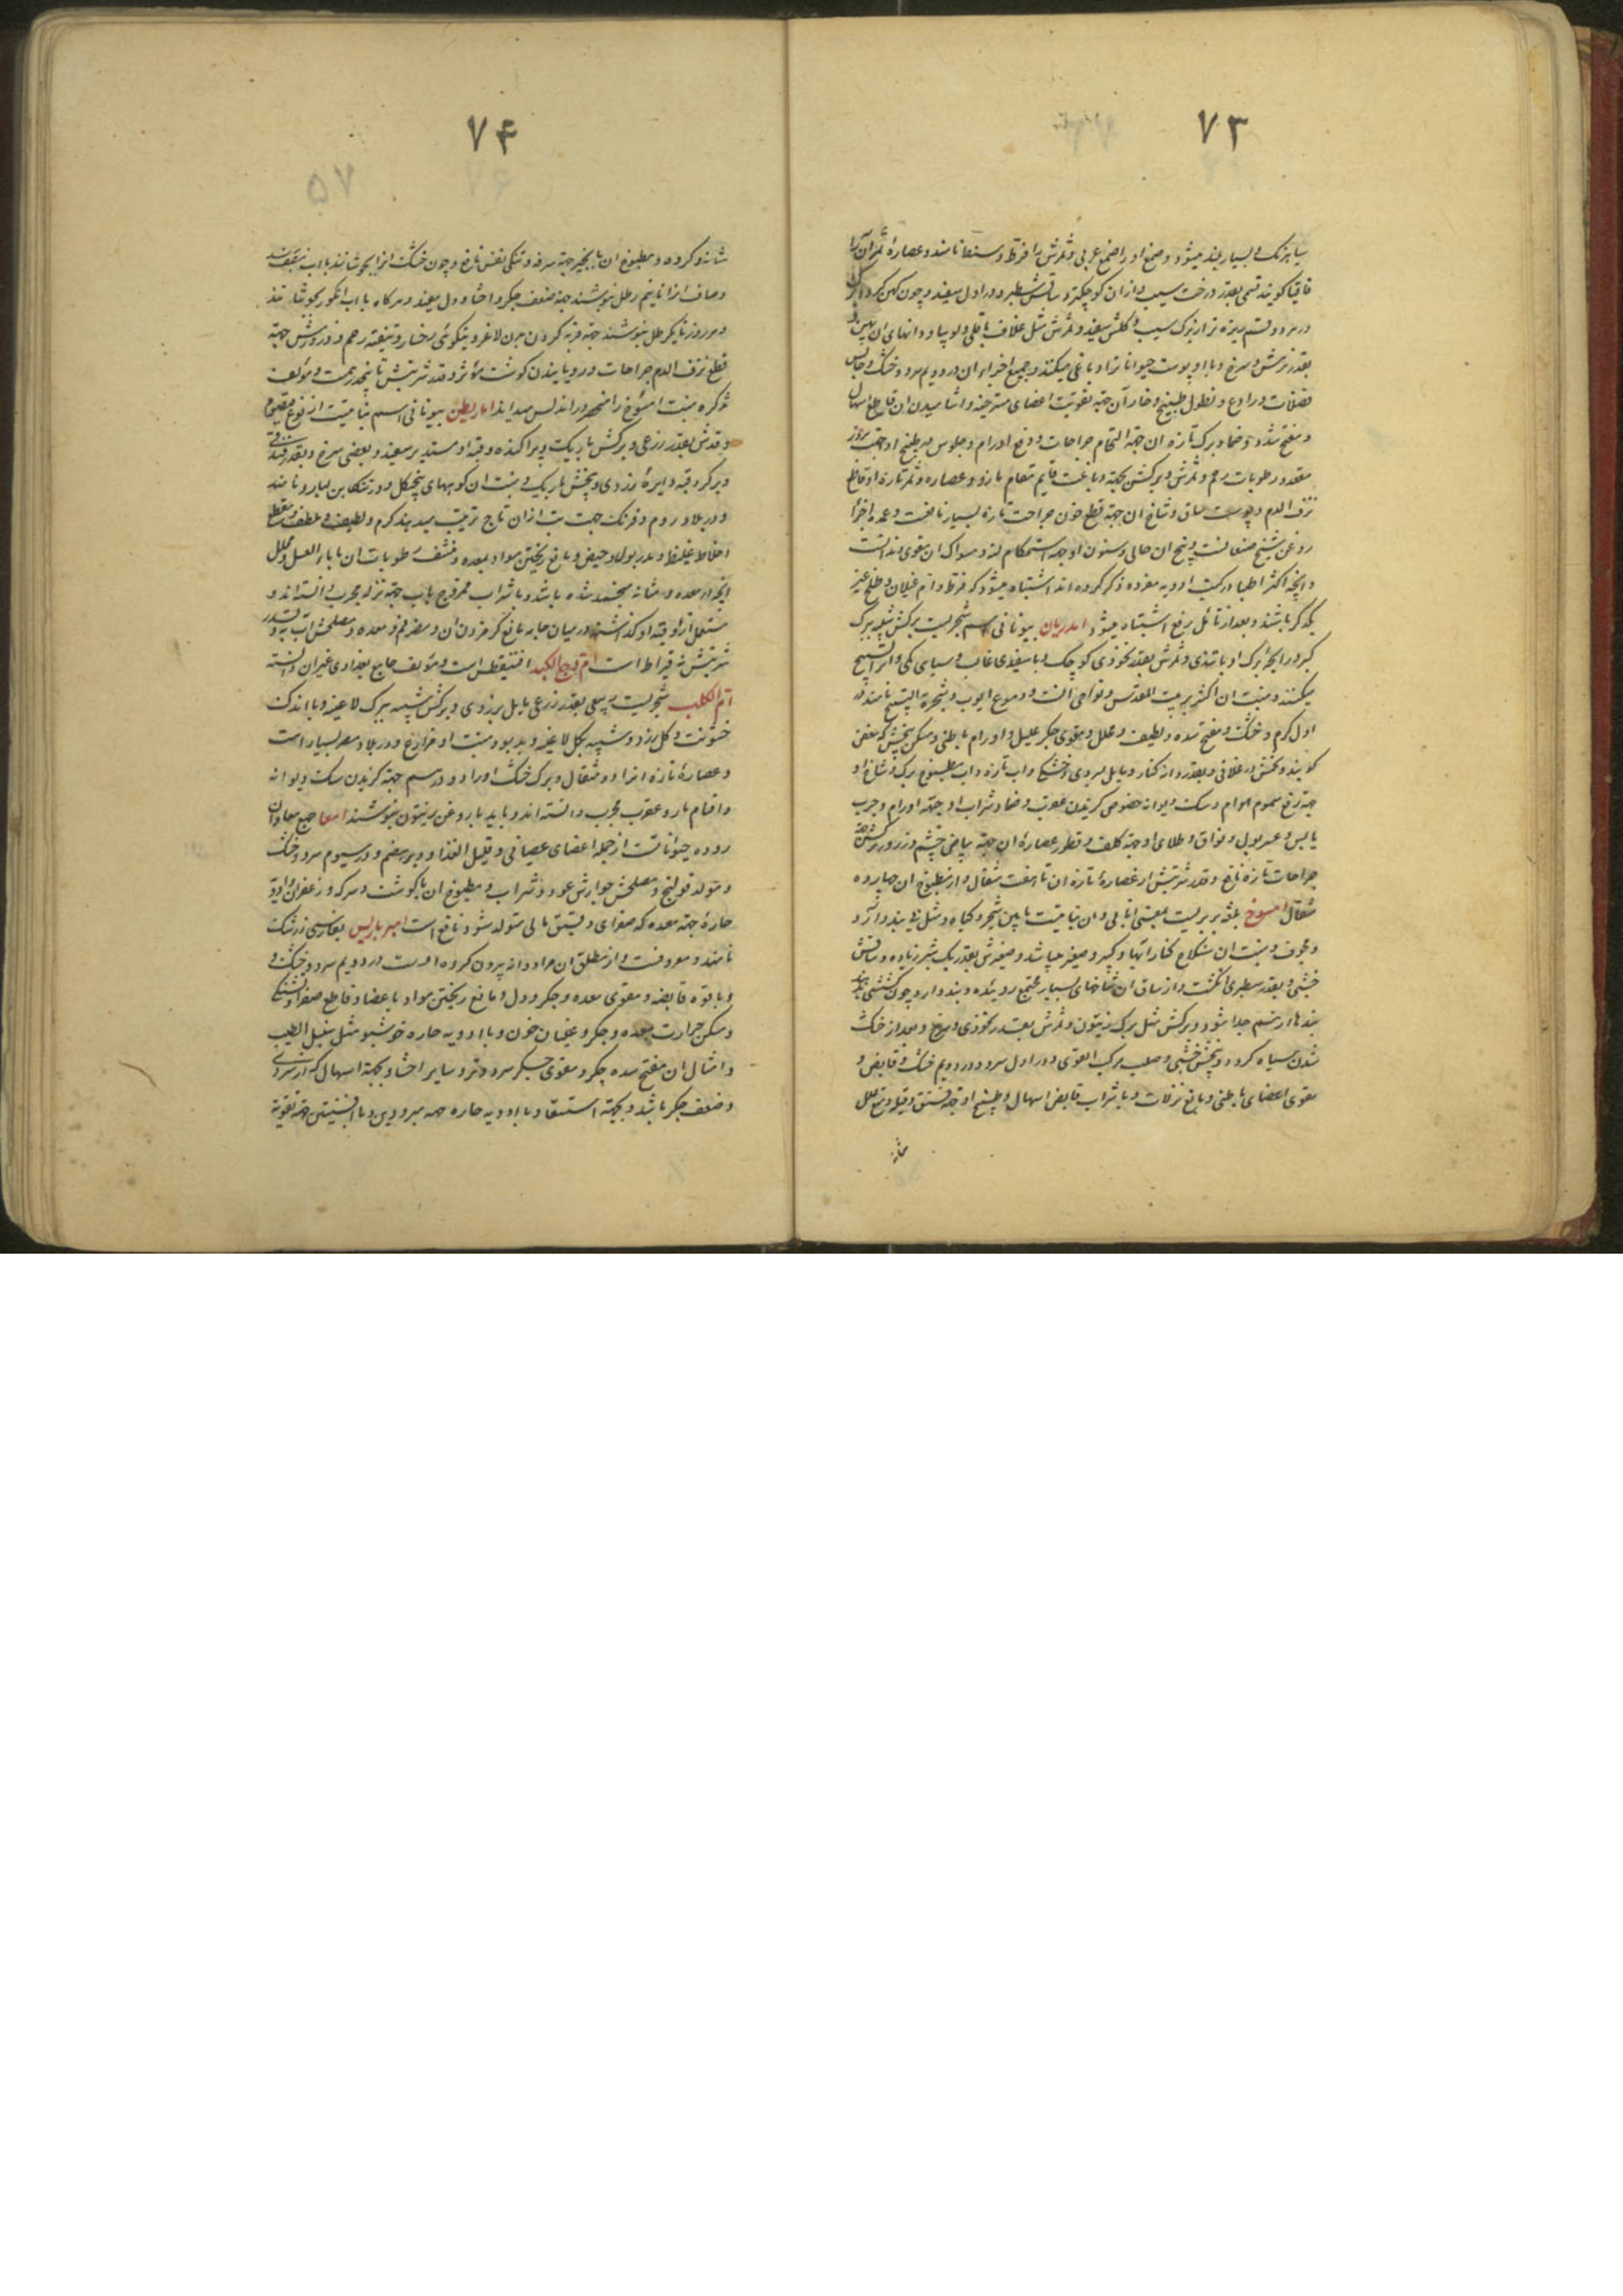 ۷۳
سیاه رنگ و بسیار بلند میشود و صمغ او را صمغ عربی و ثمرش را قرظ و سنط نامند و عصارهٔ ثمر آن را
اقاقیا کویند قسمی بقدر درخت سیب و از ان کوچکتر و ساقش سطبر و در اول سفید و چون کهن کردد
در هر دو قسم ریزه تر از برک سیب و کلش سفید و ثمرش مثل غلاف باقلی و لوبیا و دانهای ان پهن و
بقدر ترمس و سرخ و با او پوست حیوانات را دباغی میکنند و جمیع اجزاء ان در دویم سرد و خشک و حابس
فضلات و رادع و نطول طبیخ و خار آن جهة تقویت اعضای مسترخیه و اشامیدن ان قاطع اسهال
و مفتح سدد و ضماد برک تازه ان جهة التحام جراحات و دفع اورام و جلوس در طبیخ او جهة بروز
مقعد و رطوبات رحم و ثمرش و برکش بجهة دباغت قایم مقام مازو و عصاره و ثمر تازه او قاطع
نزف الدم و پوست ساق و شاخ ان جهة قطع خون جراحت تازه بسیار نافعست و عمده اجزا
روغن شیخ صنعانست و بیخ ان حالی و سنون او جهة استحکام لثه و مسواک ان مقوی دندانست
و انچه اکثر اطبا در کتب ادویه مفرده ذکر کرده اند اشتباه میشود که قرظ و ام غیلان و طلح غیر
یکدکر باشند و بعد از تامل رفع اشتباه میشود امدریان بیونانی اسم شجریست برکش شبیه ببرک
کبر و رایحه برک او با تندی و ثمرش بقدر نخودی کوچک و با سفیدی غالب و سیاهی کمی و از ان تسبیح
میکنند و منبت ان اکثر در بیت المقدس و نواحی انست و دموع ایوب و شجرة التسبیح نامند در
اول کرم و خشک و مفتح سده و لطیف و محلل و مقوی جکر علیل و اورام باطنی و مسکن
کویند و تخمش در غلافی و بقدر دانه کنار و مایل بسردی و خشکی و اب تازه و اب مطبوخ برک و شاخ او
جهة رفع سموم هوام و سک دیوانه خصوص کزیدن عقرب و ضماد و شراب او جهة اورام و جرب
یابس و عسر بول و فواق و طلای او جهة کلف و قطور عصارهٔ ان جهة بیاض چشم و ذرور برکش جهة
جراحات تازه نافع و قدر شربتش از عصارهٔ تازه ان تا هفت مثقال و از مطبوخ ان چهارده
مثقال امسوخ بلغة بربریست بمعنی انابی و ان نباتیست مابین شجر و کیاه و مثل نی بنددار و
و مجوف و منبت ان سنکلاخ کنار ابها و کبیر و صغیر میباشد و صغیرش بقدر یک شبر زیاده و ساقش
خشبی و بقدر سطبری انکشت و از ساق ان شاخهای بسیار مجتمع روئیده و بند دارد و چون
بندها از هم جدا شود و برکش مثل برک زیتون و ثمرش بقدر نخودی و سرخ و بعد از خشک
شدن سیاه کردد و بیخش خشبی و صلب مرکب القوی و در اول سرد و در دویم خشک و قابض و
مقوی اعضای باطنی و مانع نزلات و با شراب قابض اسهال و طبیخ او جهة فتق و قیله و تحلل
مثانه
۷۴
مثانه و کرده و مطبوخ ان با انجیر جهة سرفه و تنکی نفس نافع و چون خشک انرا بجوشانند با اب
و صاف انرا تا نیم رطل بنوشند جهة ضعف جکر و احشا و دل مفید و هرکاه با اب انکور بجوشانند
و هر روز تا یک رطل بنوشند جهة فربه کردن بدن لاغر و نیکوئی رخسار و تنقیه رحم و ذرورش جهة
قطع نزف الدم جراحات و رویانیدن کوشت مؤثر و قدر شربتش تا پنج درهمست و مؤلف
تذکره منبت امسوخ را منحصر در اندلس میداند امارنطن بیونانی اسم نباتیست از نوع قیصوم
و قدش بقدر زرعی و برکش باریک و پراکنده و قبه او مستدیر سفید و بعضی سرخ و بقدر فندقی
و بر کرد قبه دایرهٔ زردی و بیخش باریک و منبت ان کوههای جنکل و در تنکابن نامند
و در بلاد روم و فرنک جهت بت ازان تاج ترتیب میدهند کرم و لطیف و ملطف و مقطع
اخلاط غلیظ و مدر بول و حیض و مانع ریختن مواد بمعده و منشف رطوبات ان با ماء العسل و محلل
انجه در معده و مثانه منجمد شده باشد و با شراب ممزوج باب جهة نزله مجرب دانسته اند و
کذاشتن در میان جامه مانع کرم زدن ان و مضر فم معده و مصلحش و قدر
شربتش نه قیراط است ام وجع الکبد افتیقطس است و مؤلف جامع بغدادی غیر ان دانسته
ام الکلب شجریست ربیعی بقدر زرعی مایل بزردی و برکش شبیه ببرک لاغیه و با اندک
خشونت و کل زرد و شبیه بکل لاغیه و بدبو و منبت او مزارع و در بلاد مصر بسیار است
و عصارهٔ تازه انرا دو مثقال و برک خشک او را دو درهم جهة کزیدن سک دیوانه
و اقسام مار و عقرب مجرب دانسته اند و باید با روغن زیتون بنوشند امعا جمع معا و ان
رودهٔ حیواناتست از جمله اعضای عصبانی و قلیل الغذا و دیرهضم و در سیوم سرد و خشک
و مولد قولنج و مصلحش جوارش عود و شراب و مطبوخ ان با کوشت و سرکه و زعفران و ادویه
حارهٔ جهة معده که صفرای رقیق مالی متولد شود نافع است امبرباریس بفارسی زرشک
نامند و معروفست و از مطلق ان مراد دانه بیرون کرده اوست در دویم سرد و خشک و
و با قوه قابضه و مقوی معده و جکر و دل و مانع ریختن مواد باعضا و قاطع صفرا و تشنکی
و مسکن حرارت معده و جکر و غلیان خون و با ادویه حاره خوشبو مثل سنبل الطیب
و امثال ان مفتح سده جکر و مقوی جکر سرد و تر و سایر احشا و بجهة اسهال که از سردی
و ضعف جکر باشد و بجهة استسقا و با ادویه حاره جهة مبرودین و با افسنتین جهة تقویة